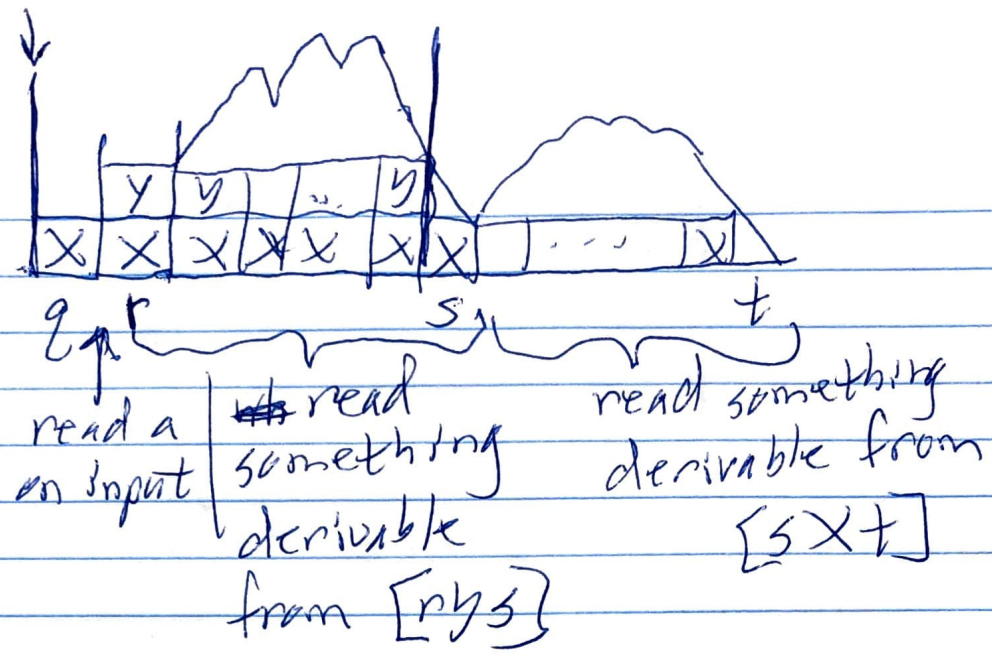 y y ... y
X X X X X X X ... X
q r s t
read a
on input
read
something
derivable
from [rys]
read something
derivable from
[sXt]